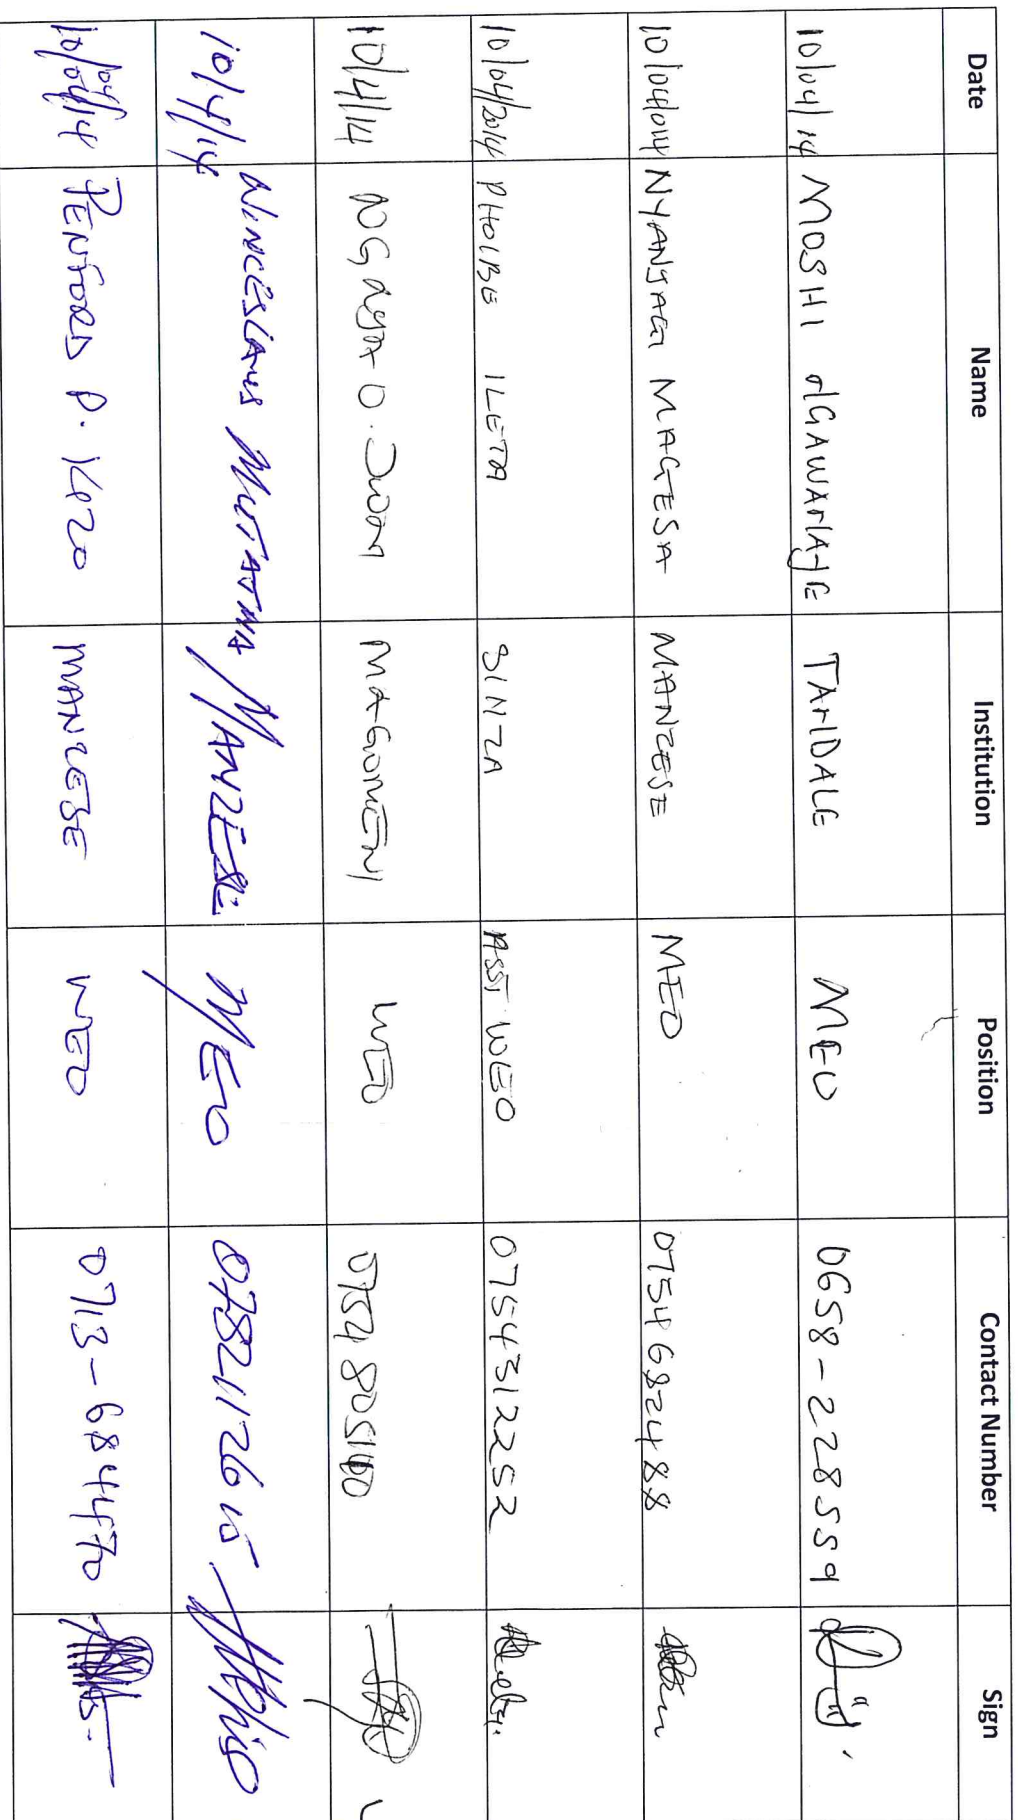 Date Name Institution Position Contact Number Sign
10/04/14 MOSHI NGAWANAJE TANDALE MEO 0658-228559
10/04/014 NYANJAGI MAGESA MANZESE MEO 0754682488
10/04/2014 PHOIBE ILETA SINZA ASST WEO 0754312252
10/4/14 MAGOMENI WEO
10/4/14 WINCESLAUS MUTATINA MANZESE MEO
10/04/14 PENFORD P. MANZESE WEO 0713-684470